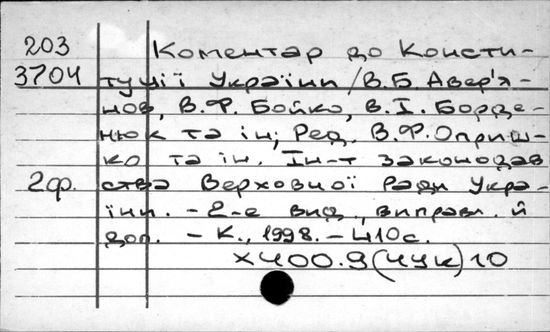 203 Коментар до Консти-
3704 туції України / В.Б. Авер'я-
нов, В.Ф. Бойко, В.І. Борде-
нюк та ін; Ред. В.Ф. Оприш-
ко та ін. Ін-т законодав
2ф. ства Верховної Ради Укра-
їни. - 2-е вид., виправл. й
доп. - К., 1998. - 410с.
Х400.9(4УК)10